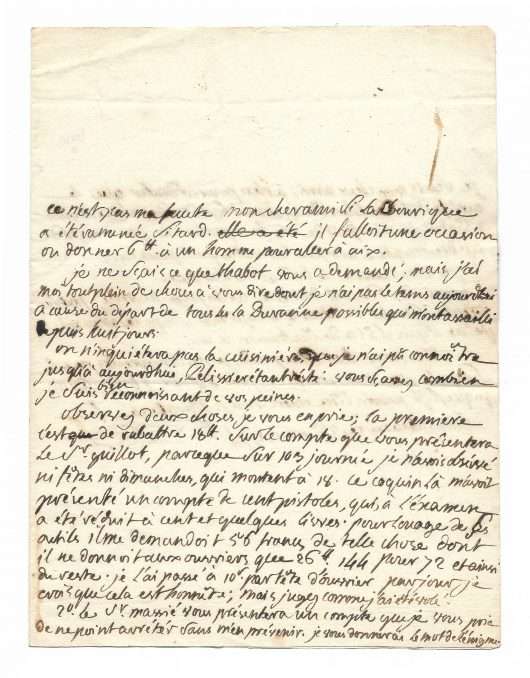 ce n'est pas ma faute mon cher ami si la bourrique
a été ramenée si tard. elle a été il falloit une occasion
ou donner 6 ₶. à un homme pour aller à aix.
je ne sçais ce que chabot vous a demandé, mais j'ai
moi tout plein de choses à vous dire dont je n'ai pas le tems aujourd'hui
à cause du départ de tous les possibles qui m'ont assailli
depuis huit jours.
on n'inquiétera pas la cuisiniere, que je n'ai pu connoitre
jusqu'à aujourdhui, Pelissier étant : vous sçavez combien
je suis bien reconnoissant de vos peines.
observez deux choses je vous en prie; la premiere
c'est que de rabattre 18 ₶. sur le compte que vous présentera
le Sr. guillot, parceque sur 103 journées je n'avois observé
ni fêtes ni dimanches, qui montent à 18. ce coquin là m'avoit
présenté un compte de cent pistoles, qui, à l'examen
a été réduit à cent et quelques livres. pour louage de ses
outils il me demandoit 536 francs de telle chose dont
il ne donnoit aux ouvriers que 26 ₶. 144 pour 72 et ainsi
du reste. je l'ai passé à 10s. par tête d'ouvrier par jour, je
crois que cela est honnête; mais jugez comme j'ai été volé.
2o. le Sr. massié vous présentera un compte que je vous prie
de ne point arrêter sans m'en prévenir. je vous donnerai le mot de l'énigme.